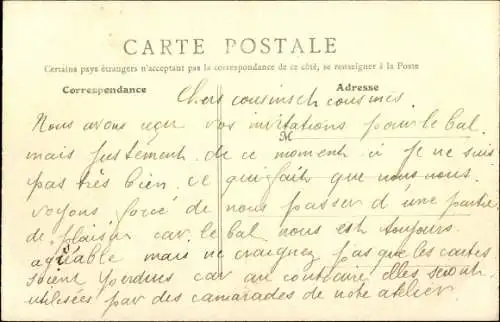 CARTE POSTALE
Certains pays étrangers n'acceptant pas la correspondance de ce côté, se renseigner à la Poste
Correspondance
Adresse
Chers cousins et cousines.
Nous avons reçu vos invitations pour le bal
M
mais justement de ce moment ci je ne suis
pas très bien. ce qui fait que nous nous
voyons forcé de nous passer d'une partie
de plaisir car le bal nous est toujours
agréable mais ne craignez pas que les cartes
soient perdues car au contraire elles seront
utilisées par des camarades de notre atelier.